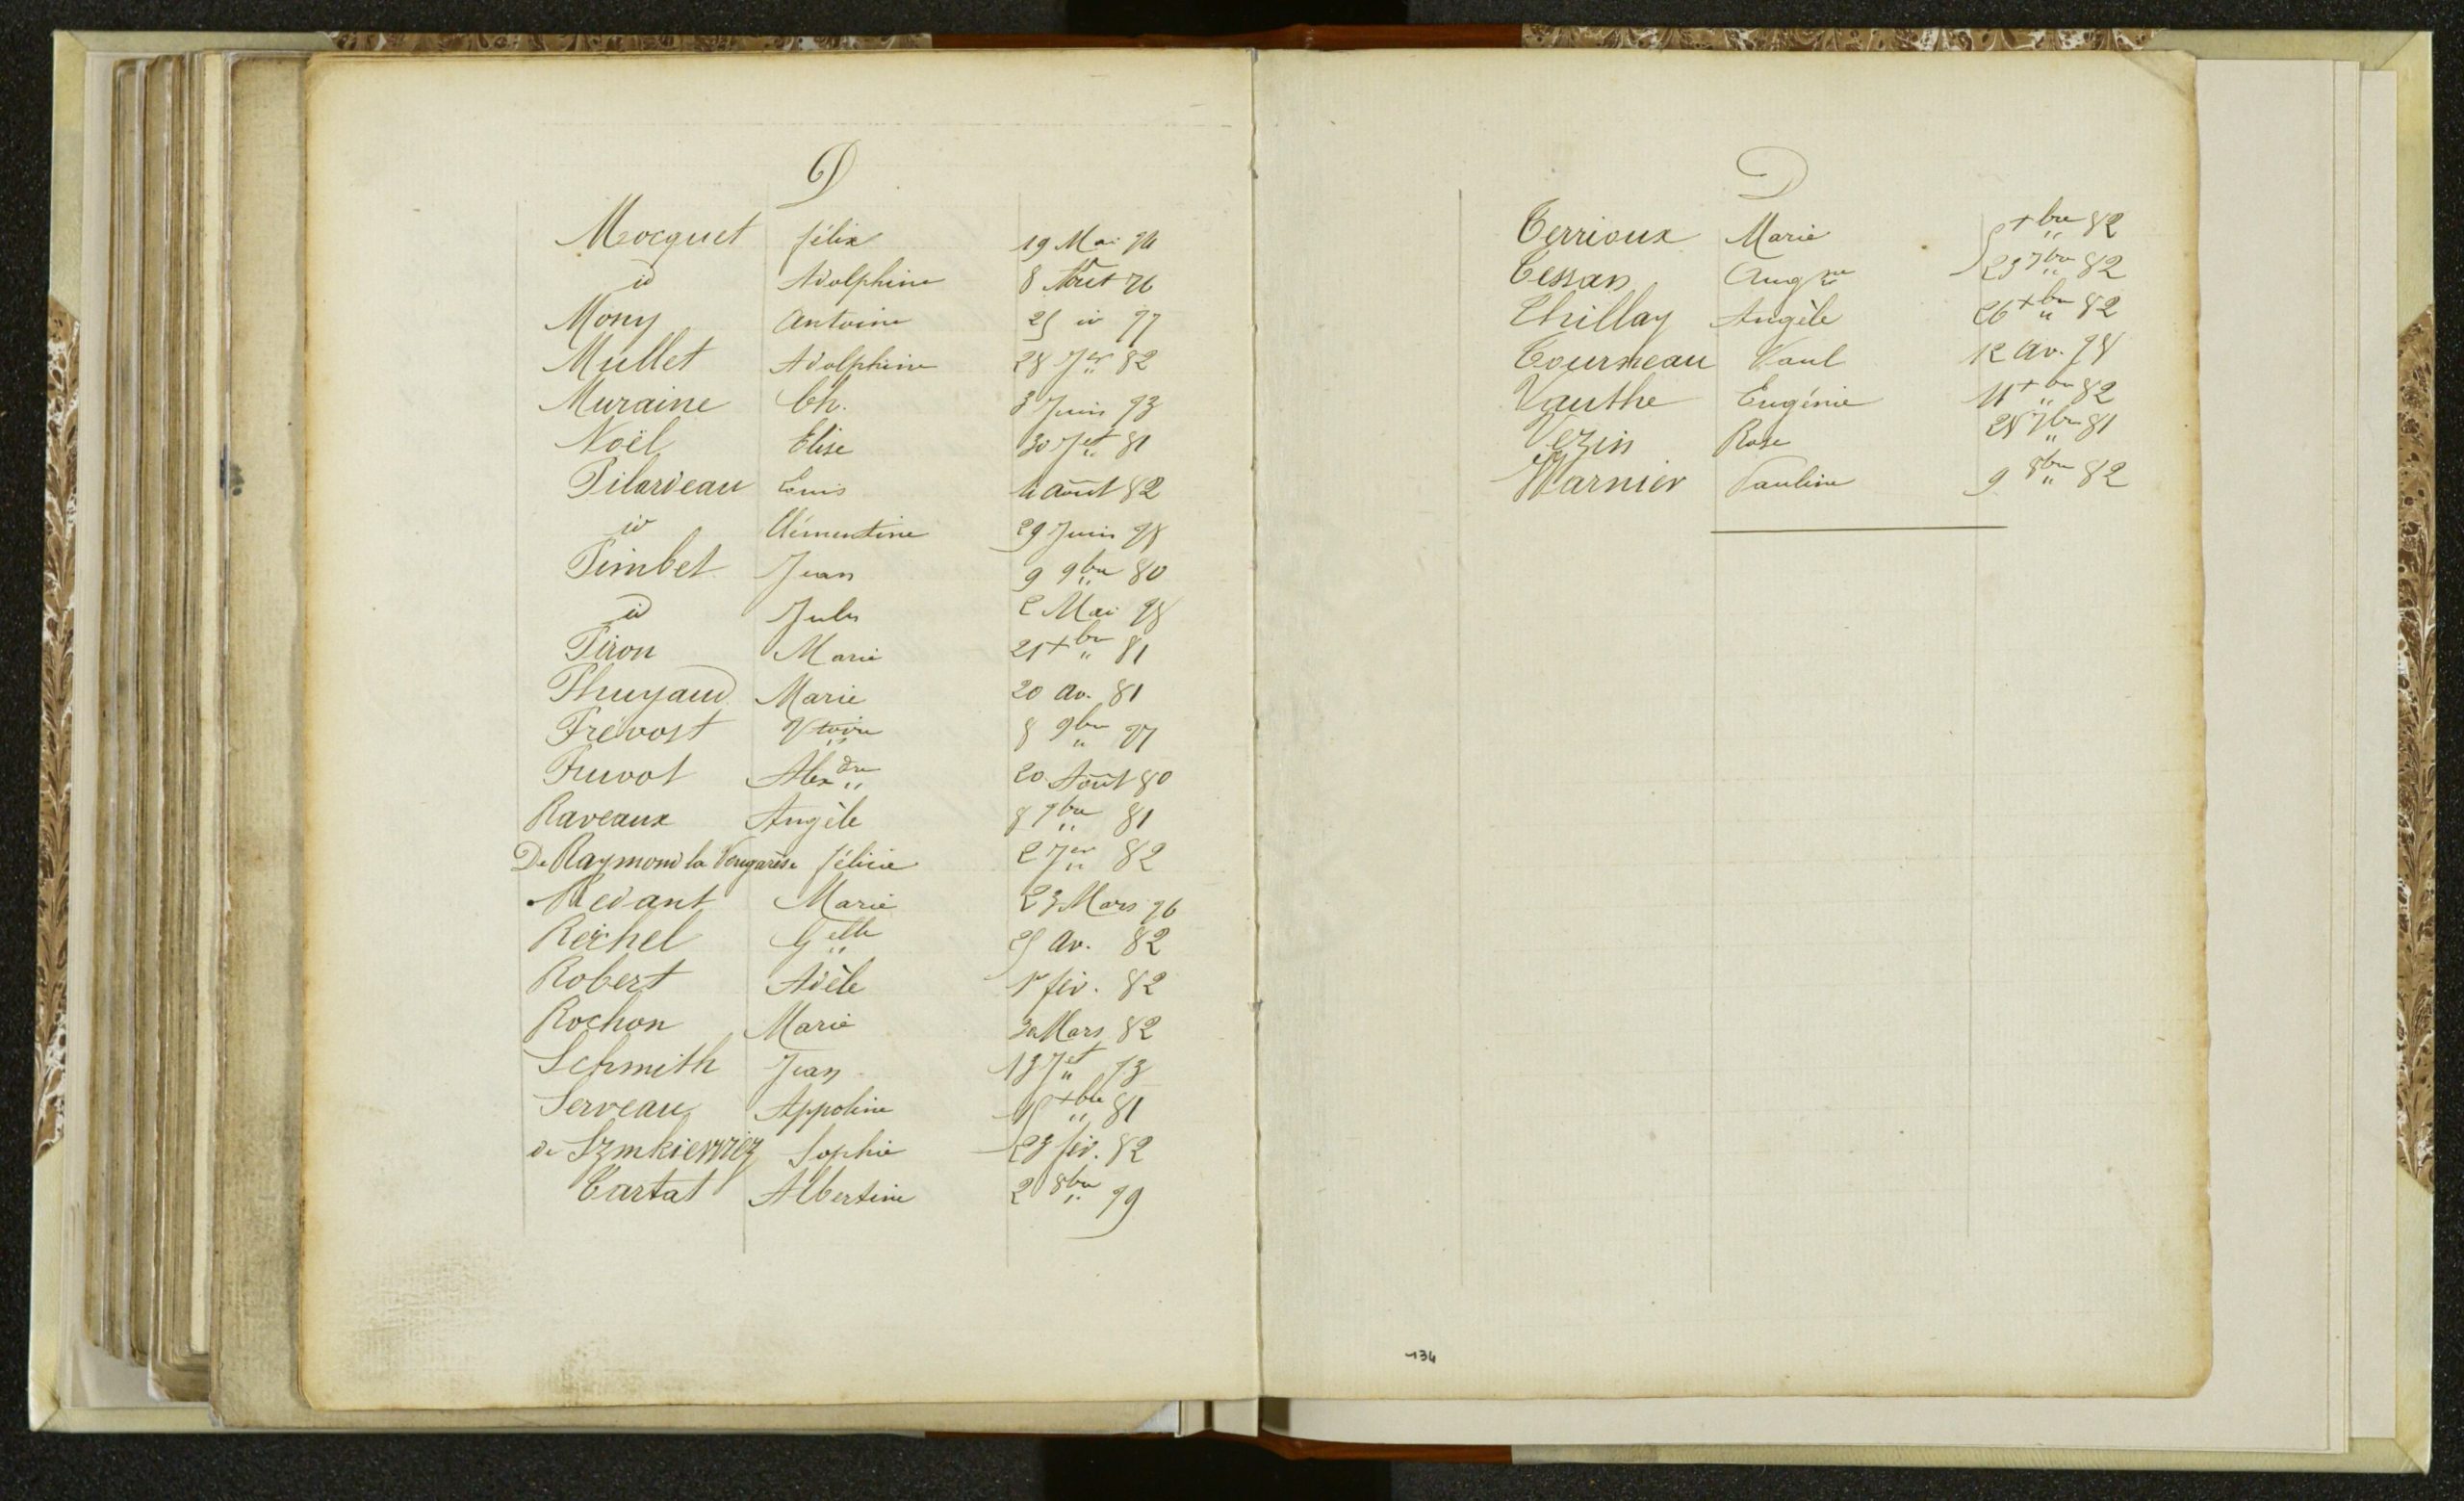 D
Mocquet félix 19 Mai 76
id Adolphine 8 Août 76
Mony Antoine 25 id 77
Mullet Adolphine 28 Jer 82
Muraine Ch. 3 Juin 73
Noël Elise 30 Jet 81
Pilardeau Louis 4 août 82
id Clémentine 29 Juin 78
Pimbet Jean 9 9bre 80
id Jules 2 Mai 78
Piron Marie 21 Xbre 81
Marie 20 av. 81
Prévost Vtoire 8 9bre 77
Pruvot Alexdre 20 Août 80
Raveaux Angèle 8 7bre 81
De Raymond la félicie 2 Jer 82
Redant Marie 23 Mars 76
Reichel Gette 25 av. 82
Robert Adèle 1r fév. 82
Rochon Marie Mars 82
Schmith Jean 13 Jet 73
Serveau Appoline 15 Xbre 81
de Szmkiewiez Sophie 23 fév. 82
Tartat Albertine 2 8bre 79
D
Terrioux Marie 5 Xbre 82
Tessan Augne 23 7bre 82
Thillay Angèle 26 Xbre 82
Tourneau Paul 12 av. 78
Vauthe Eugénie 11 Xbre 82
Vezin Rose 28 7bre 81
Warnier Pauline 9 8bre 82
134